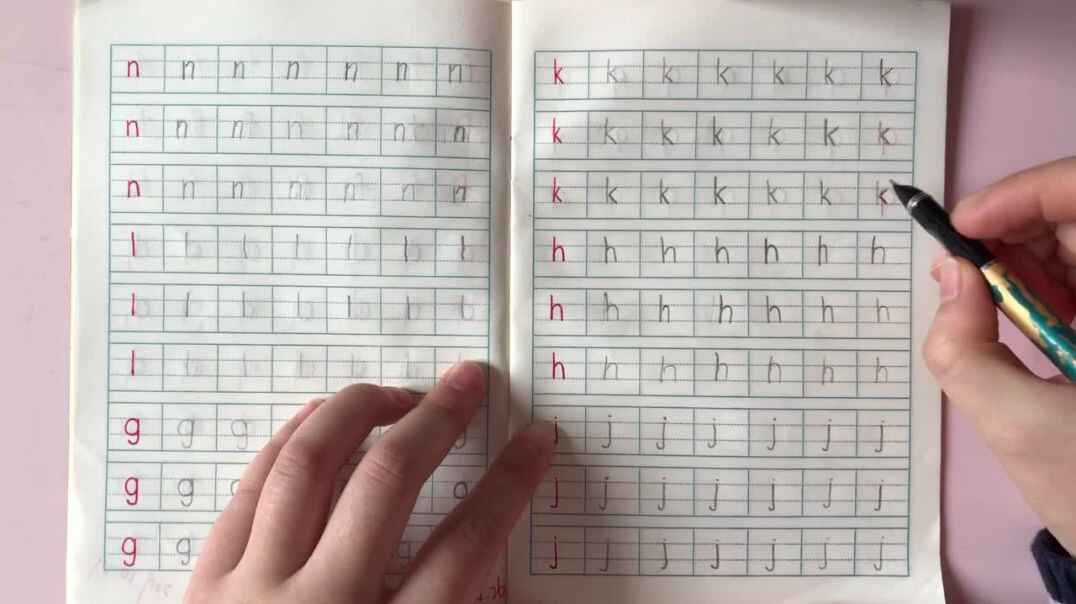 n n n n n n n
n n n n n n n
n n n n n n n
l l l l l l l
l l l l l l l
l l l l l l l
g g g g
g g g
g g g
k k k k k k k
k k k k k k k
k k k k k k k
h h h h h h h
h h h h h h h
h h h h h h h
j j j j j j j
j j j j j j j
j j j j j j j